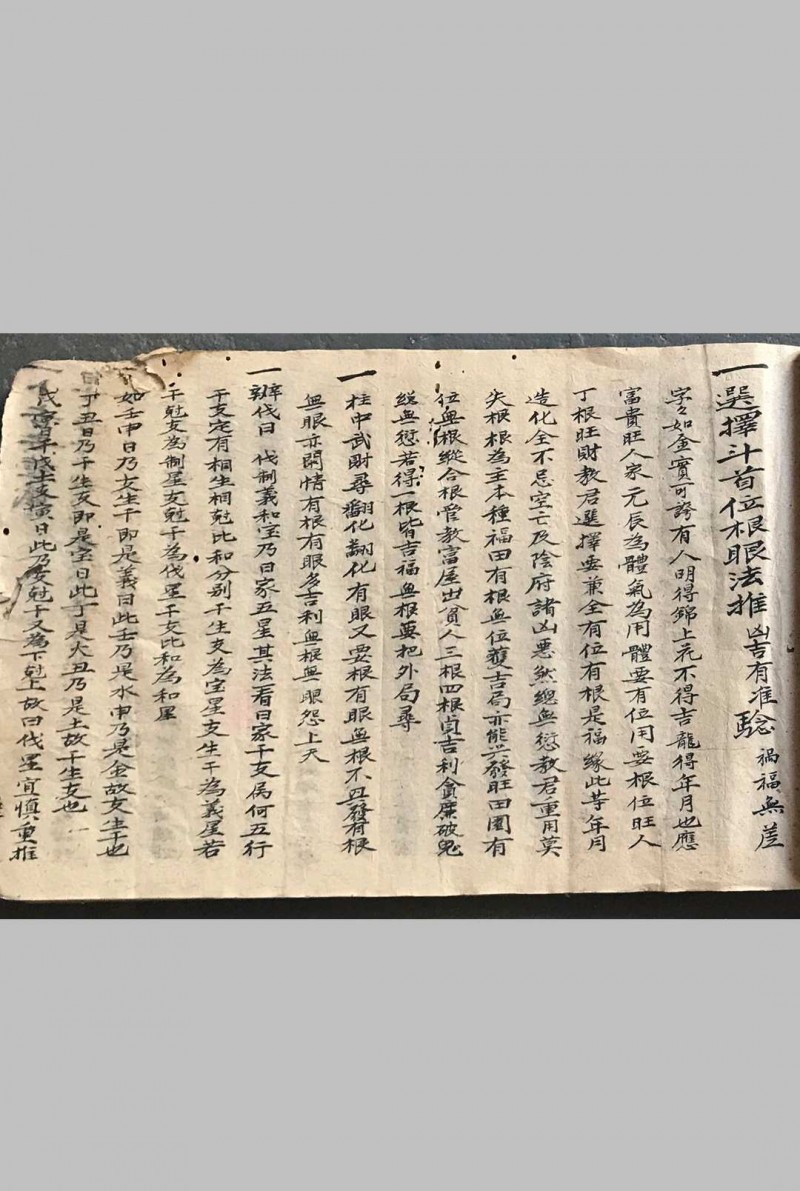 一選擇斗首位根眼法推凶吉有准騐禍福無差
字々如金實可誇有人明得錦上花不得吉龍得年月也應
富貴旺人家元辰為體氣為用體要有位用要根位旺人
丁根旺財教君選擇要兼全有位有根是福緣此等年月
造化全不忌空亡及陰府諸凶悪煞總無愆教君重用莫
失根根為主本種福田有根無位䕶吉局亦能兴發旺田園有
位無根縱合根管教富屋出貧人三根四根貞吉利貪廉破鬼
総無愆若得一根皆吉福無根要把外局尋
一柱中武財尋翻化翻化有眼又要根有眼無根不丑發有根
無眼亦閑情有根有眼多吉利無根無眼怨上天
一辨伐日伐制義和宝乃日家五星其法看日家干支属何五行
干支定有相生相尅比和分别干生支為宝星支生干為義星若
干尅支為制星支尅干為伐星干支比和為和星
如壬申日乃支生干即是義日此壬乃是水申乃是金故支生干也
丁丑日乃干生支即是宝日此丁是火丑乃是土故干生支也
日此乃支尅干又為下尅上故曰伐星宜慎重推